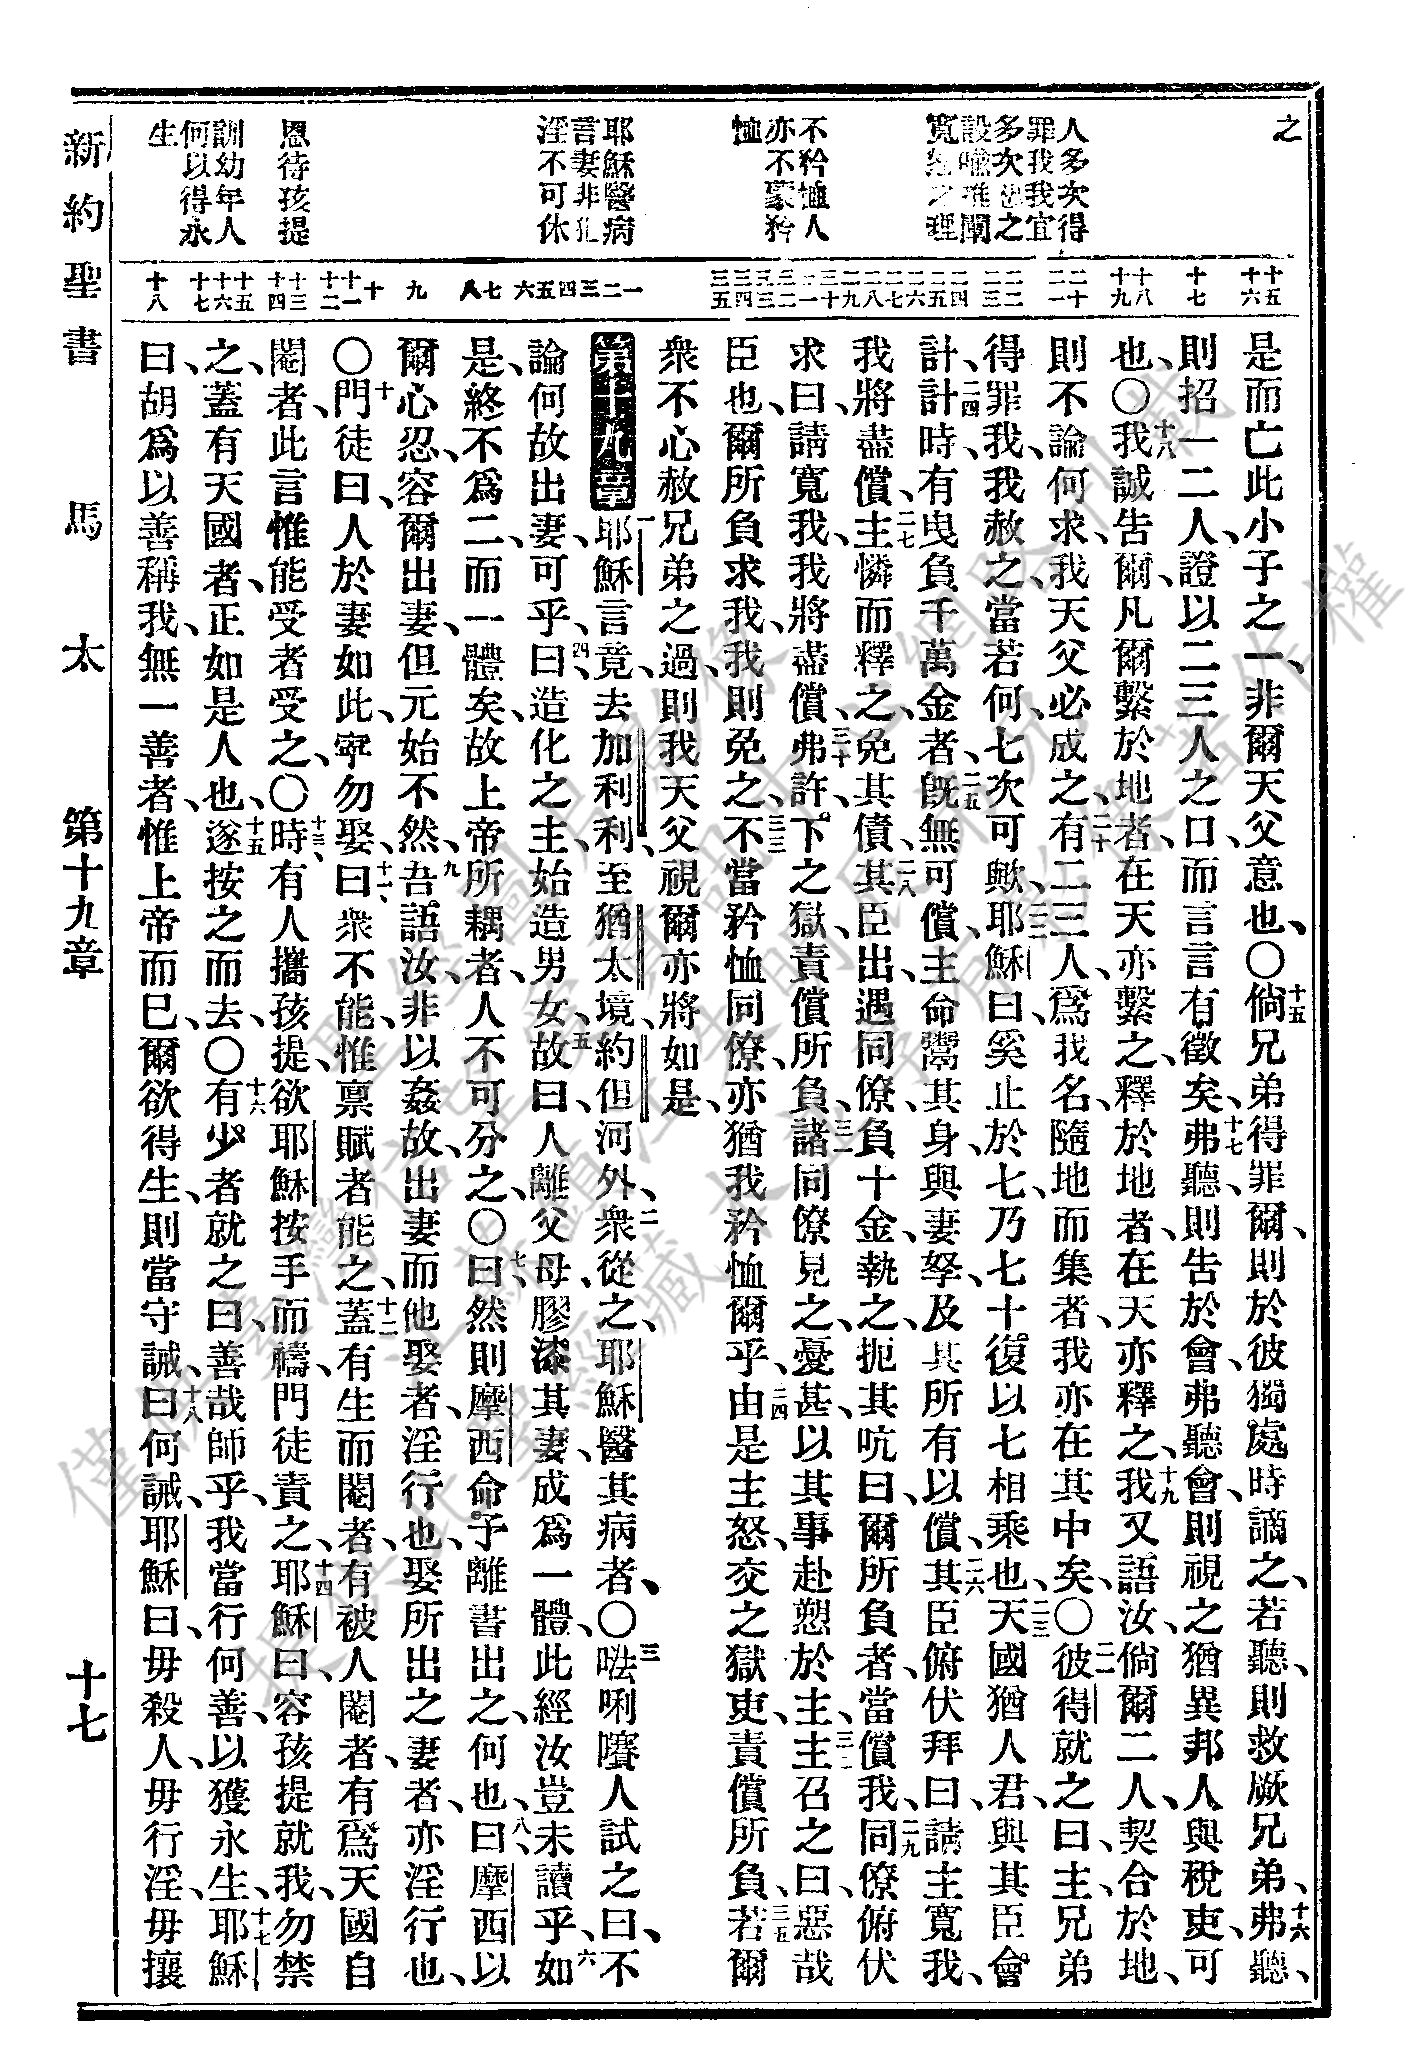 之
人多次得
罪我我宜
多次恕之
設喻推闡
寬恕之理
不矜恤人
亦不蒙矜
恤
耶穌醫病
言妻非犯
淫不可休
恩待孩提
訓幼年人
何以得永
生
十五
十六
十七
十八
十九
二十
二一
二二
二三
二四
二五
二六
二七
二八
二九
三十
三一
三二
三三
三四
三五
一
二
三
四
五
六
七
八
九
十
十一
十二
十三
十四
十五
十六
十七
十八
是而亡此小子之一、非爾天父意也、〇十五倘兄弟得罪爾、則於彼獨處時謫之、若聽、則救厥兄弟、十六弗聽、
則招一二人、證以二三人之口而言言有徵矣、十七弗聽、則告於會、弗聽會、則視之猶異邦人與稅吏、可
也、〇十八我誠告爾、凡爾繫於地者、在天亦繫之、釋於地者、在天亦釋之、十九我又語汝、倘爾二人、契合於地、
則不論何求、我天父必成之、二十有二三人、爲我名、隨地而集者、我亦在其中矣、〇二一彼得就之曰、主、兄弟
得罪我、我赦之、當若何、七次可歟、二二耶穌曰、奚止於七、乃七十復以七相乘也、二三天國猶人君、與其臣會
計、二四計時、有曳負千萬金者、二五旣無可償、主命鬻其身、與妻孥、及其所有以償、二六其臣俯伏拜曰、請主寬我、
我將盡償、二七主憐而釋之、免其債、二八其臣出、遇同僚、負十金、執之、扼其吭曰、爾所負者、當償我、二九同僚俯伏
求曰、請寬我、我將盡償、三十弗許、下之獄、責償所負、三一諸同僚見之、憂甚、以其事赴愬於主、三二主召之曰、惡哉
臣也、爾所負求我、我則免之、三三不當矜恤同僚、亦猶我矜恤爾乎、三四由是主怒、交之獄吏、責償所負、三五若爾
衆不心赦兄弟之過、則我天父、視爾亦將如是、
第十九章 一耶穌言竟、去加利利、至猶太境、約但河外、二衆從之、耶穌醫其病者、〇三𠵽唎㘔人試之曰、不
論何故出妻、可乎、四曰、造化之主、始造男女、五故曰、人離父母、膠漆其妻、成爲一體、此經汝豈未讀乎、六如
是、終不爲二、而一體矣、故上帝所耦者、人不可分之、〇七曰、然則摩西命予離書出之、何也、八曰、摩西以
爾心忍、容爾出妻、但元始不然、九吾語汝、非以姦故、出妻而他娶者、淫行也、娶所出之妻者、亦淫行也、
〇十門徒曰、人於妻如此、寜勿娶、十一曰、衆不能、惟禀賦者能之、十二蓋有生而閹者、有被人閹者、有爲天國自
閹者、此言惟能受者受之、〇十三時有人攜孩提、欲耶穌按手而禱、門徒責之、十四耶穌曰、容孩提就我、勿禁
之、蓋有天國者、正如是人也、十五遂按之而去、〇十六有少者就之曰、善哉師乎、我當行何善、以獲永生、十七耶穌
曰、胡爲以善稱我、無一善者、惟上帝而巳、爾欲得生、則當守誡、十八曰、何誡、耶穌曰、毋殺人、毋行淫、毋攘
新約聖書 馬太 第十九章 十七